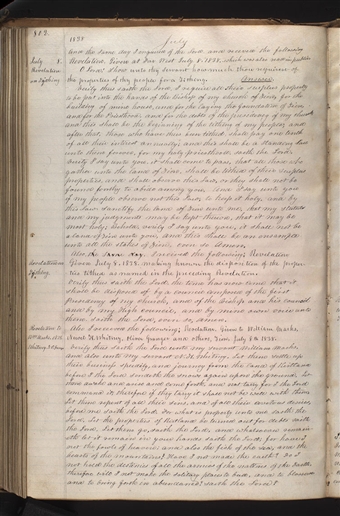 813.
1838
July
And the same day I inquired of the Lord and received the following
July 8.
Revelation, Given at Far West July 8. 1838, which was also
Revelation
O Lord! Show unto thy servant how much thou requirest of
on Tithing
the properties of thy people for a Tithing. Answer.
Verily thus saith the Lord, I require all their surplus property
to be put into the hands of the bishop of my church of Zion, for the
building of mine house, and for the laying the foundation of Zion,
and for the Priesthood, and for the debts of the presidency of my church
and this shall be the beginning of the tithing of my people, and
after that, those who have thus been tithed, shall pay one tenth
of all their interest annually; and this shall be a standing law
unto them forever, for my holy priesthood, saith the Lord.
Verily I say unto you, it shall come to pass, that all those who
gather unto the land of Zion, shall be tithed of their surplus
properties, and shall observe this law, or they shall not be
found worthy to abide among you. And I say unto you
if my people observe not this law, to keep it holy, and by
this law sanctify the land of Zion unto me, that my statutes
and my judgments may be kept thereon, that it may be
most holy; behold, verily I say unto you, it shall not be
a land of Zion unto you, and this shall be an ensample
unto all the stakes of Zion, even so Amen.
Also, the same day, I received the following; Revelation
Given July 8, 1838, making known the disposition of the proper-
ties tithed as named in the preceding Revelation.
Verily thus saith the Lord, the time has now come that it
shall be disposed of by a council composed of the first
presidency of my church, and of the bishop and his council
and by my high council, and by mine own voice unto
them saith the Lord, even so, Amen.
Also I received the following; Revelation, Given to William Marks,
Newel K. Whitney, Oliver Granger and others, Zion, July 8th 1838.
Verily thus saith the Lord unto my servant William Marks,
and also unto my servant N. K. Whitney. Let them settle up
their business speedily, and journey from the land of Kirtland
before I the Lord sendeth the snows again upon the ground, let
them awake and arise and come forth and not tarry, for I the Lord
command it; therefore if they tarry it shall not be well with them
let them repent of all their sins, and of all their covetous desires,
before me saith the Lord. For what is property unto me saith the
Lord. Let the properties of Kirtland be turned out for debts saith
the Lord. Let them go, saith the Lord, and whatsoever remain-
eth let it remain in your hands saith the Lord; for have I
not the fowls of heaven, and also the fish of the sea, and the
beasts of the mountains? Have I not made the earth? Do I
not hold the destinies of all the armies of the nations of the Earth,
therefore will I not make the solitary places to bud, and to blossom
and to bring forth in abundance? saith the Lord?